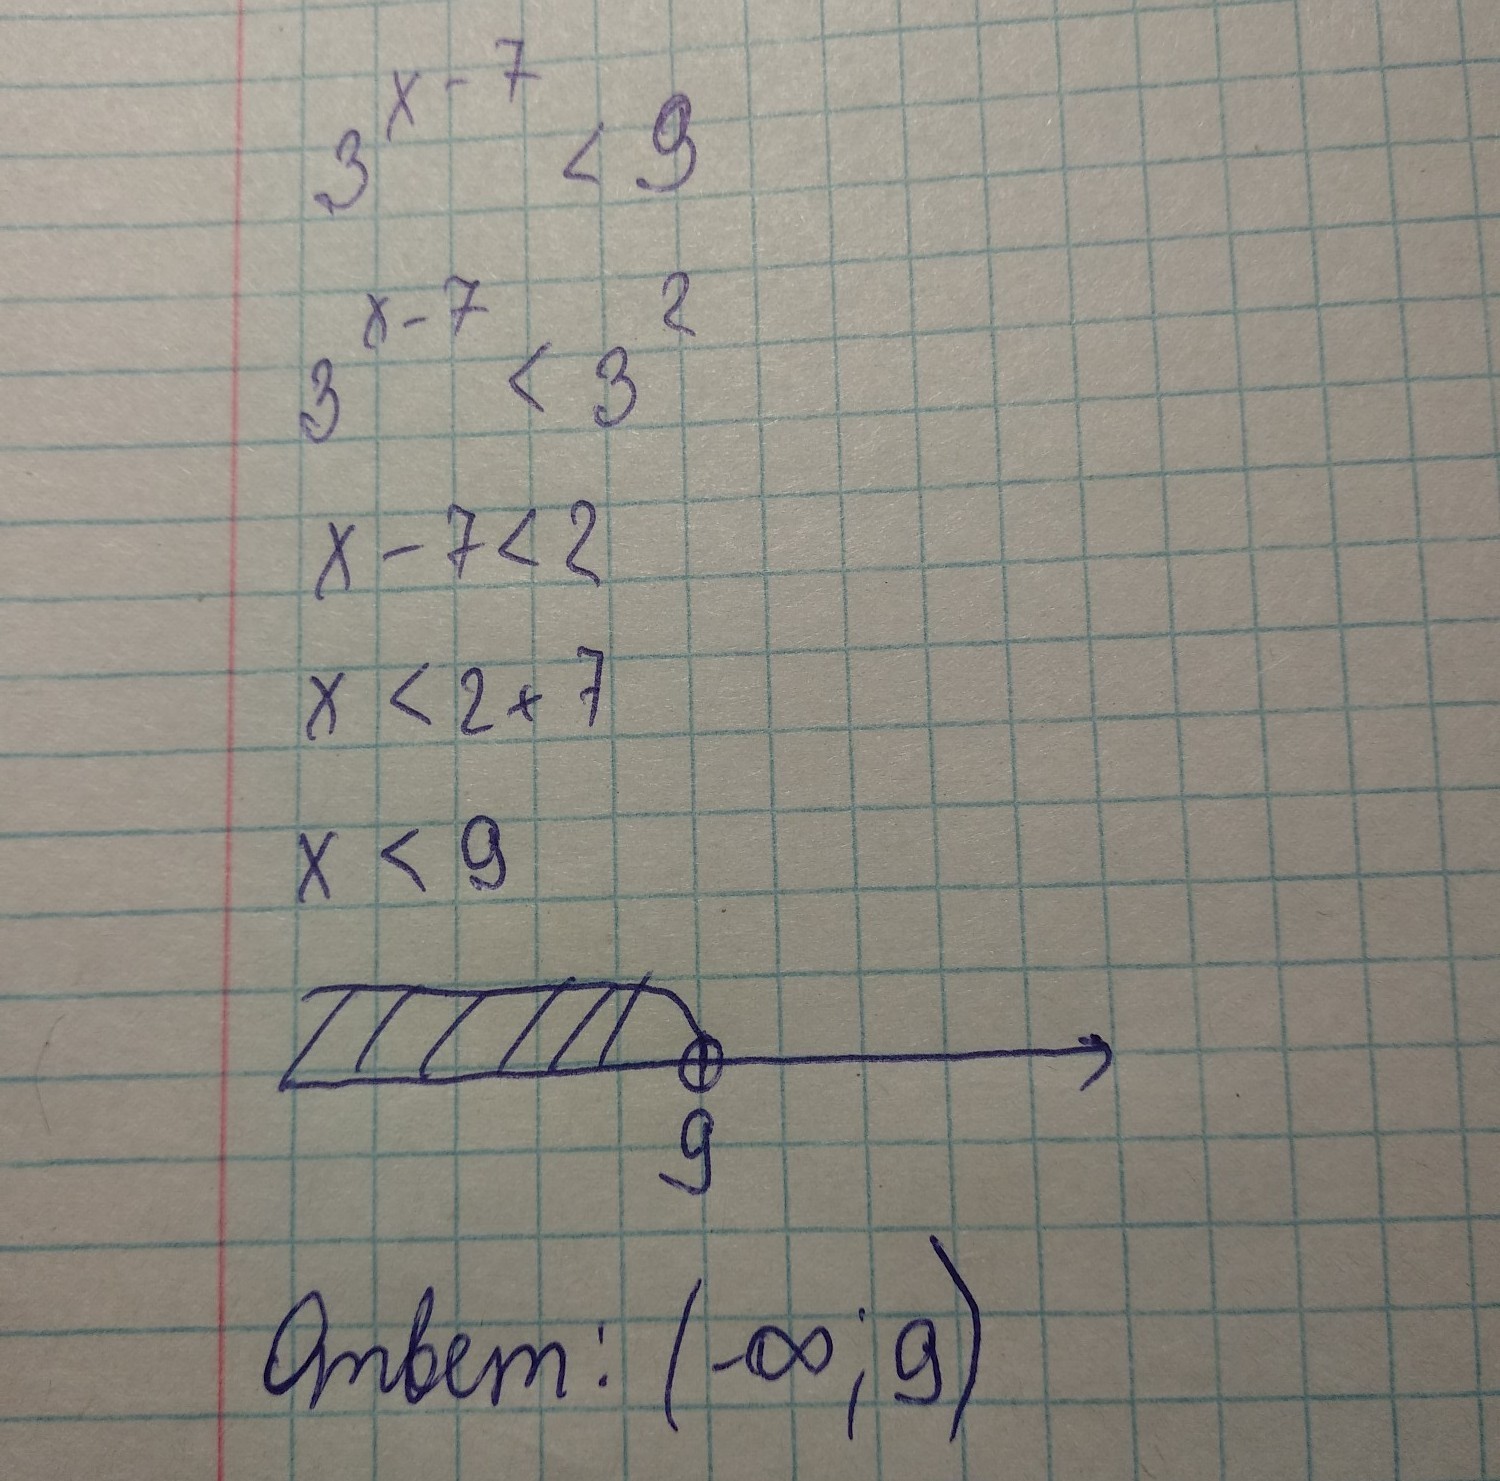 3^{x-7} < 9
3^{x-7} < 3^2
x - 7 < 2
x < 2 + 7
x < 9
9
Ответ: (-∞; 9)